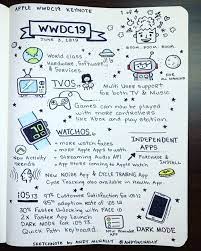 APPLE WWDC19 KEYNOTE
WWDC19
JUNE 3, 2019
World class
Hardware, Software
& Services
BOOM. BOOM. BOOM.
TVOS
Multi User support
for both TV & Music
Games can now be played
with more controllers
like Xbox and play station.
WATCHOS
• more watch faces
• more Apple Apps to watch
• Streaming Audio API
New Activity
Trends
INDEPENDENT
APPS
PURCHASE &
INSTALL
• New NOISE App & CYCLE TRACKING App
Cycle Tracking also available in Health App
iOS 13
97% Customer Satisfaction for iOS 12
30% Faster Unlocking with FACE ID
2X Faster App Launch
Quick Path Keyboard
DARK MODE
SKETCHNOTE by ANDY MCNALLY @ANDYMCNALLY